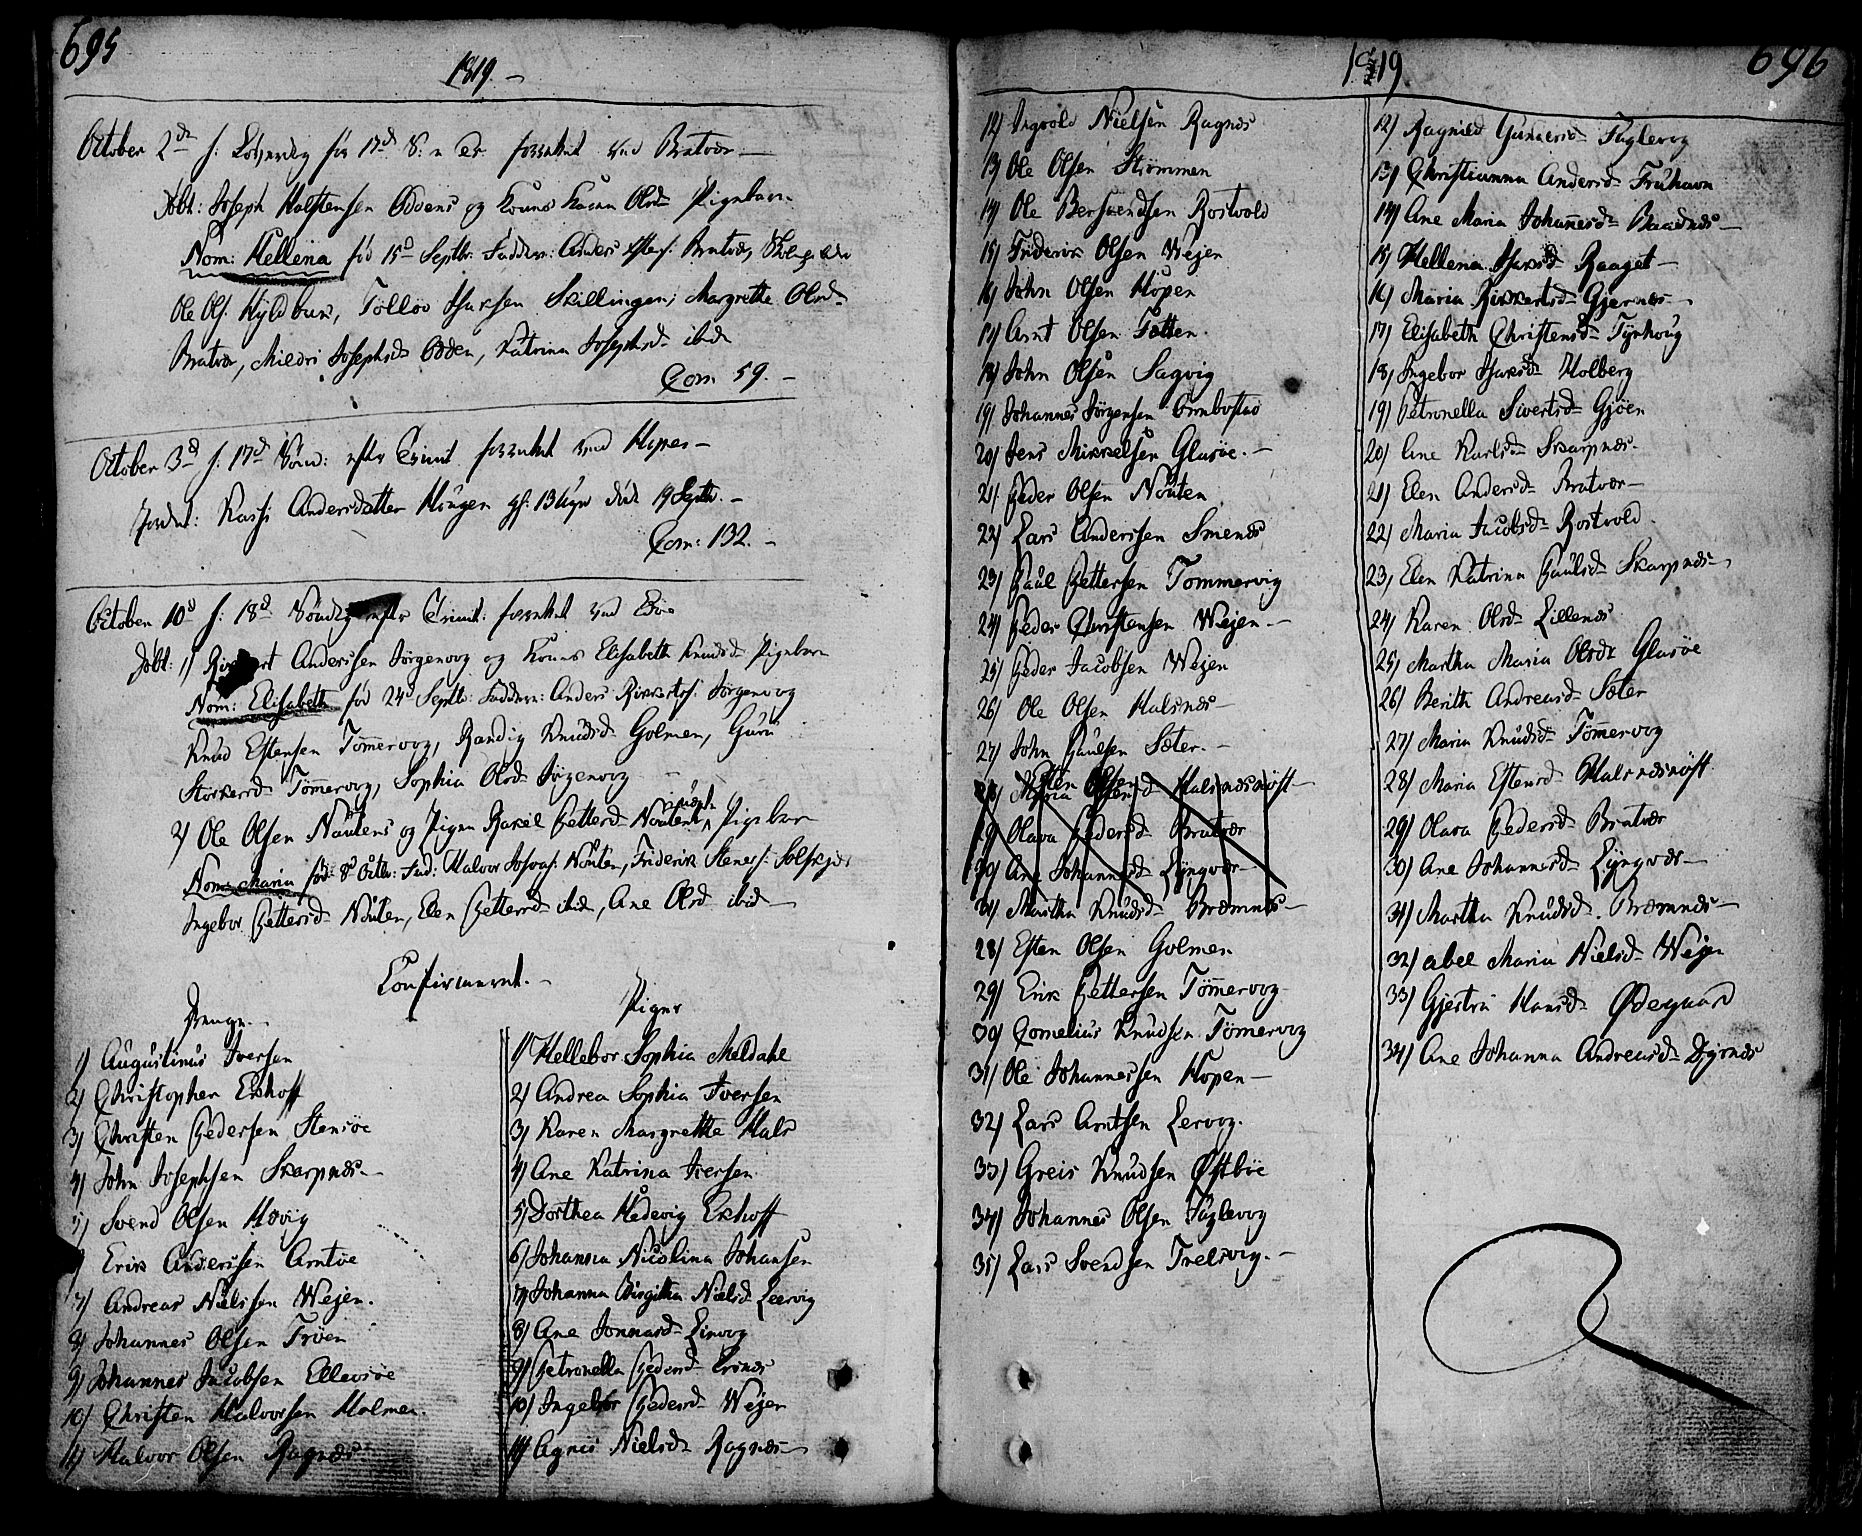 695
1819. –
October 2de f. Löverdag for 17d S. e Tr. forrettet ved Bratvær –
Döbt: Joseph Halstensen Oddens og Kones Karen Olsd– Pigebarn
Nom: Hellena fød 15d Septbr. Faddere: Anders Bratvær,
Ole Ols. Kyldbus, Tollov Isaksen Skillingen, Margrethe Olsd–
Bratvær, Mildri Josephsd– Odden, Katrina Josephsd– ibid
Com 59. –
October 3d f. 17d Sönd: efter Trinit forrettet ved Hopen –
Jordet: Kassi Andersdatter Höugen gl: 13 Uger död 19 Septbr. –
Com: 132. –
October 10d f. 18d Söndag efter Trinit: forrettet ved Edöe
Döbt: 1) Rikkert Anderssen Jörgenvog og Kones Elisabeth Knudsd– Pigebarn
Nom: Elisabeth fød 24d Septbr: Faddere: Anders Rikkertss: Jörgenvog
Knud Estensen Tömmervog, Randig Knudsd– Golmen, Guru
Storkersd– Tömmervog, Sophia Olsd– Jörgenvog –
2) Ole Olsen Nöutens og Pigen Rakel Pettersd– Nöutens uægte Pigebarn
Nom: Maria fød: 8 Octbr: Fad: Halvor Nöuten, Friderik Stenerss: Solskjel
Ingebor Pettersd– Nöuten, Elen Pettersd– ibid, Ane Olsd– ibid –
Confirmeret. –
Drenge –
1) Augustinus Iversen
2) Christopher Ekhoff
3) Christen Pedersen Stensöe
4) John Josephsen Skarpnæs –
5) Svend Olsen Hævig
Erik Anderssen Arntöe
7) Andreas Nielssen Wejen.
8) Johannes Olsen Tröen
9) Johannes Jacobsen Ellevsöe
10) Christen Halvorsen Holmen.
11) Halvor Olsen Ragnæs
Piger
1) Hellebor Sophia Meldahl
2) Andrea Sophia Iversen
3) Karen Margrethe Hals
4) Ane Katrina Iversen
5) Dorthea Hedevig Ekhoff
6) Johanna Nicolina Johansen
7) Johanna Birgitha Nielsd– Leervig
8) Ane Jonnasd– Leirvog
9) Petronella Pedersd– Ersnæs
10) Ingebor Pedersd– Wejen
11) Agnis Nielsd– Ragnæs –
1819
696
12) Ingvold Nielsen Ragnæs
13) Ole Olsen Strömmen
14) Ole Bersvendsen Rostvold
15) Friderik Olsen Wejen
16) John Olsen Hopen
17) Arnt Olsen Fætten
18) John Olsen Sagvig
19) Johannes Jörgensen Ormbostad
20) Jens Mikkelsen Glasöe. –
21) Peder Olsen Nöuten
22) Lars Anderssen Smenæs
23) Paul Pettersen Tommervig
24) Peder Christensen Wejen –
25) Peder Jacobsen Wejen
26) Ole Olsen Halsnæs –
27) John Paulsen Sæter. –
28) Maria Estensd– Halsnæsnöst
29) Olava Pedersd– Bratvær
30) Ane Johannesd– Lyngvær –
31) Martha Knudsd– Bræmnæs –
28) Esten Olsen Golmen
29) Erik Pettersen Tömmervog
30) Cornelius Knudsen Tömmervog
31) Ole Johannessen Hopen –
32) Lars Arntsen Lervog.
33) Greis Knudsen Østböe
34) Johannes Olsen Fuglevog
35) Lars Svendsen Trelsvig. –
12) Ragnild Gunnersd– Fuglevog
13) Christianna Andersd– Fruhavn
14) Ane Maria Johannesd– Baadnæs –
15) Hellena Isaksd– Raaget –
16) Maria Rikkertsd– Gjernæs –
17) Elisabeth Christensd– Tyrhoug
18) Ingebor Isaksd– Holberg
19) Petronella Sivertsd– Gjöen
20) Ane Karlsd– Skarpnæs –
21) Elen Andersd– Bratvær –
22) Maria Jacobsd– Rostvold.
23) Elen Katrina Paulsd– Skarpnæs –
24) Karen Olsd– Lillenæs
25) Martha Maria Olsd– Glasöe
26) Berith Andreasd– Sæter
27) Maria Knudsd– Tömmervog
28) Maria Estensd– Halsnæsnöst
29) Olava Pedersd– Bratvær
30) Ane Johannesd– Lyngvær –
31) Martha Knudsd– Bræmnæs –
32) Abel Maria Nielsd– Wejen
33) Gjertru Hansd– Ødegaard
34) Ane Johanna Andreasd– Dyrnæs